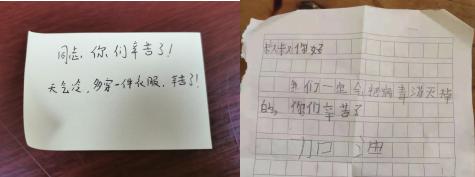 同志，你们辛苦了！
天气冷，多穿一件衣服，辛苦了！
叔叔你好
我们一定会把病毒消灭掉
的，你们辛苦了
加口油